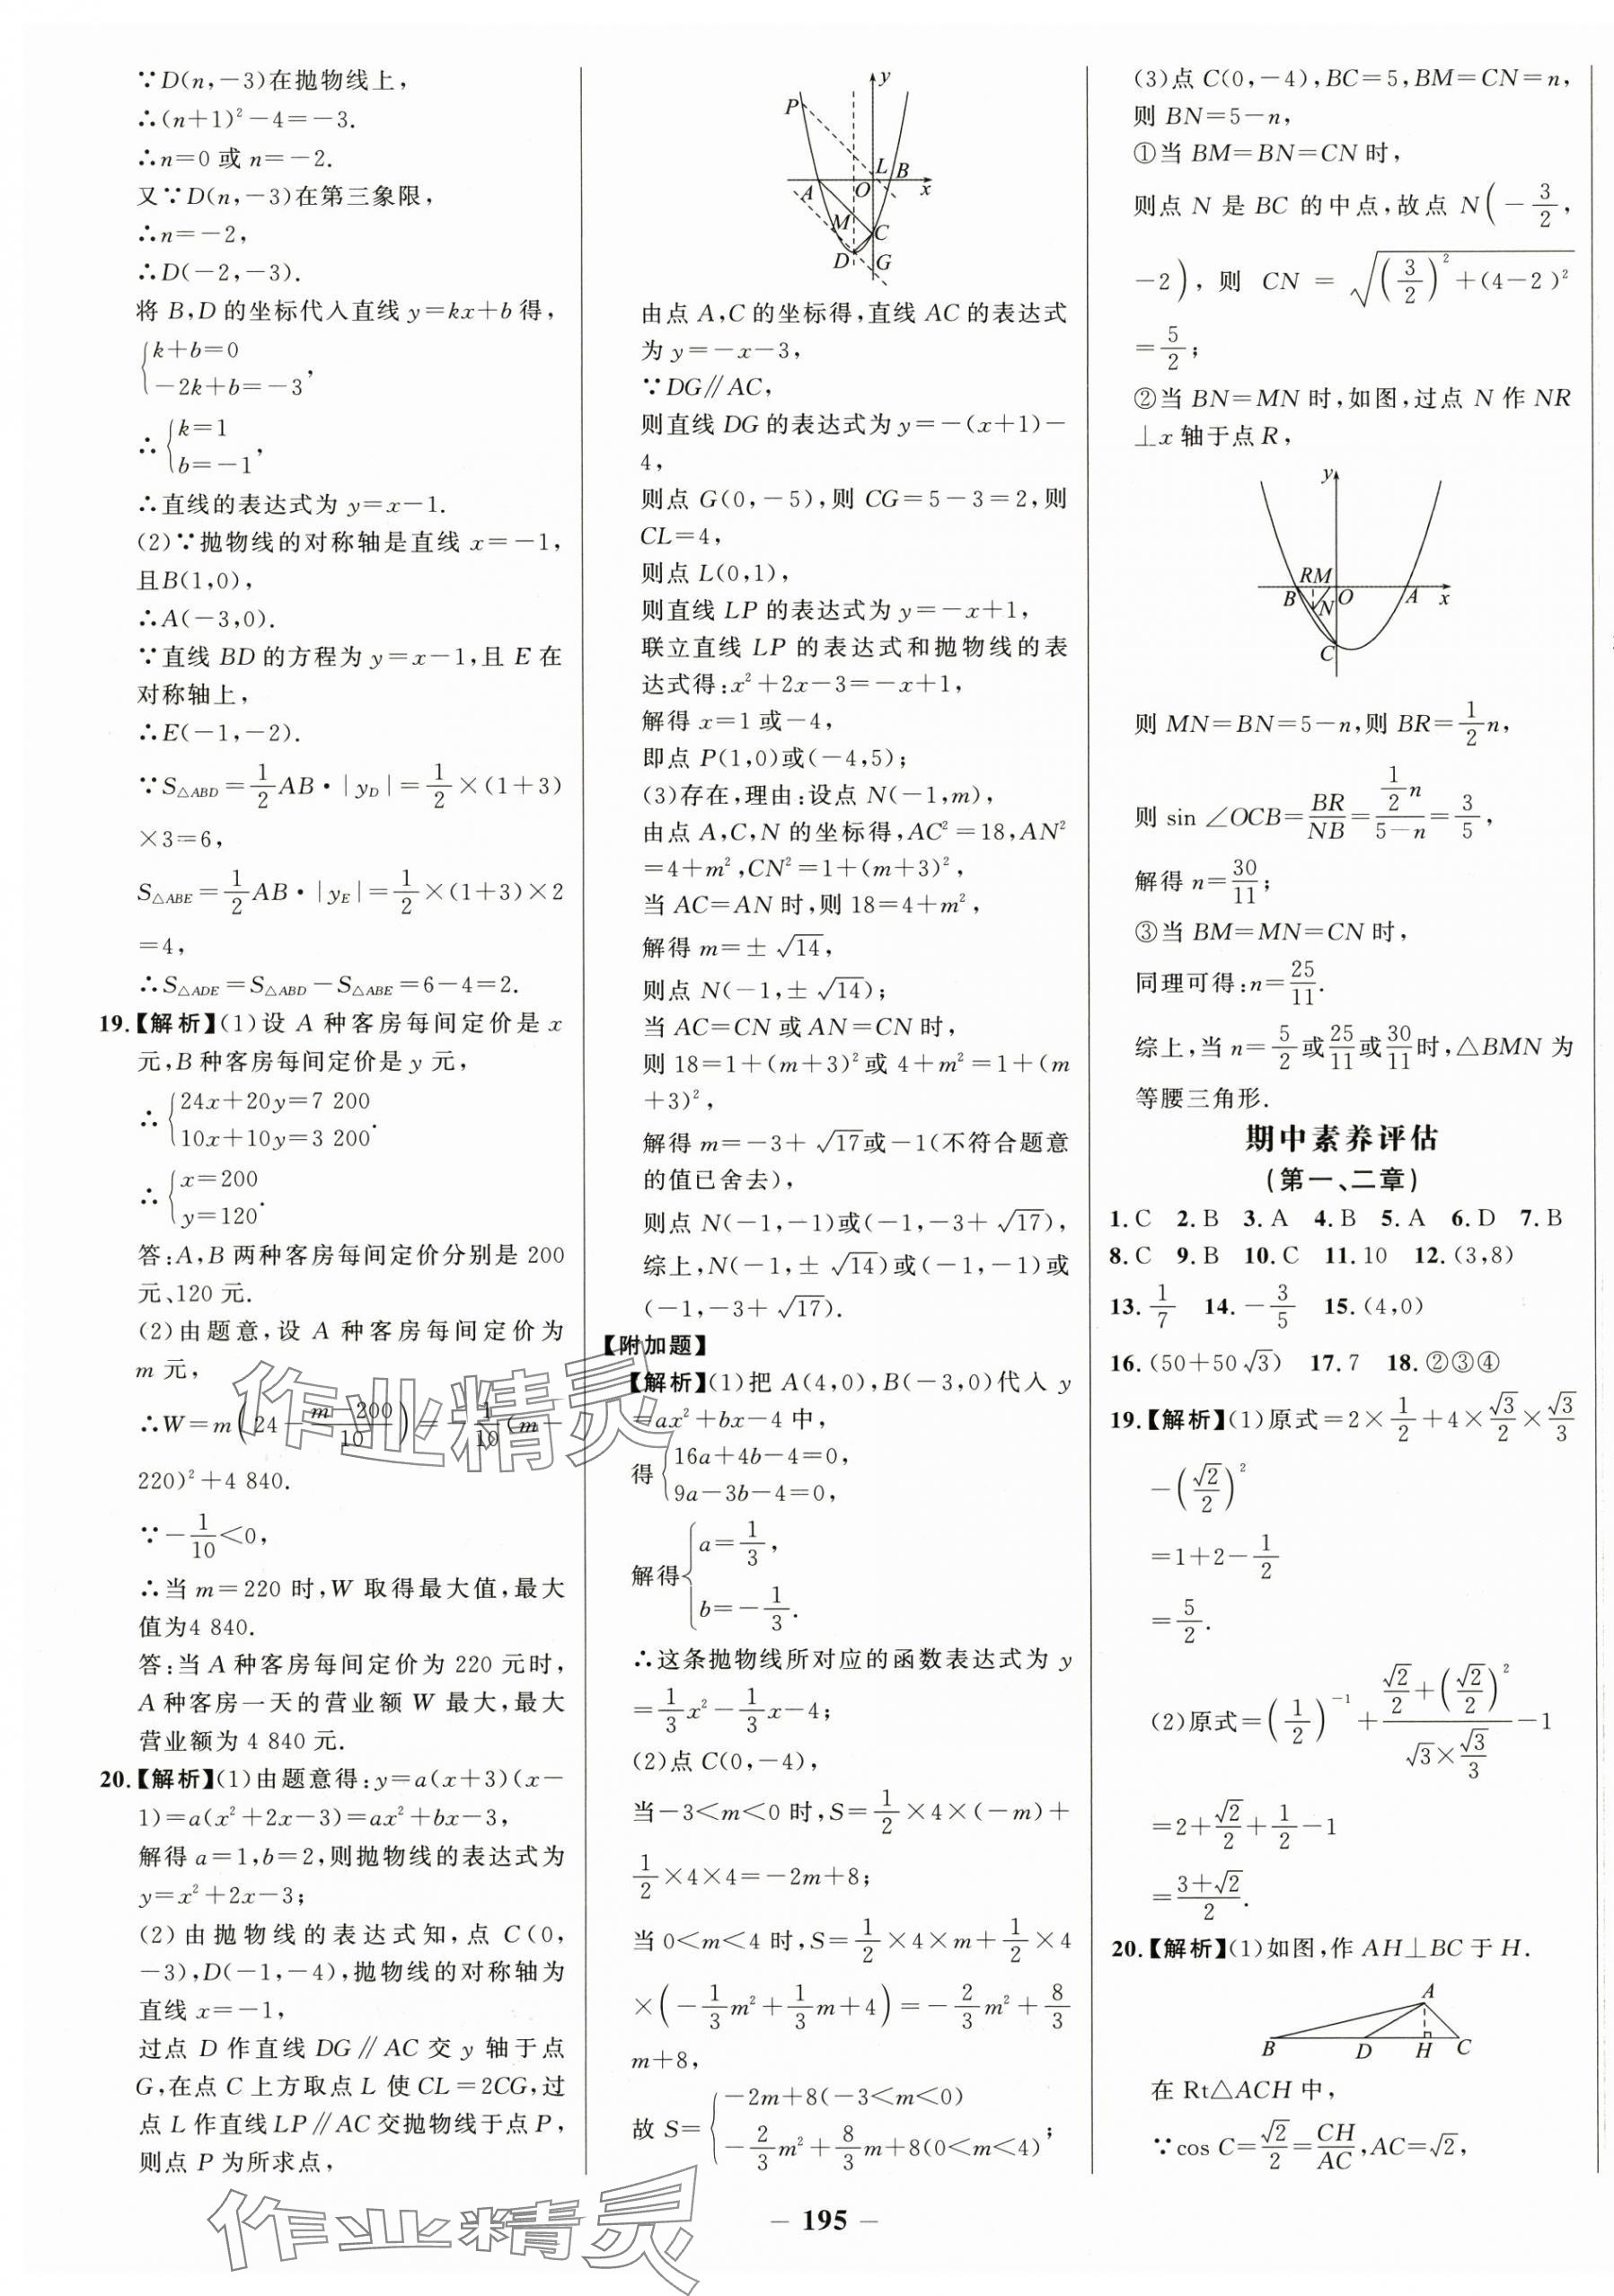 ∵D(n,-3)在抛物线上,
∴(n+1)²-4=-3.
∴n=0或n=-2.
又∵D(n,-3)在第三象限,
∴n=-2,
∴D(-2,-3).
将B,D的坐标代入直线y=kx+b得,
{k+b=0
-2k+b=-3,
∴{k=1
b=-1,
∴直线的表达式为y=x-1.
(2)∵抛物线的对称轴是直线x=-1,
且B(1,0),
∴A(-3,0).
∵直线BD的方程为y=x-1,且E在
对称轴上,
∴E(-1,-2).
∵S△ABD=1/2AB·|yD|=1/2×(1+3)
×3=6,
S△ABE=1/2AB·|yE|=1/2×(1+3)×2
=4,
∴S△ADE=S△ABD-S△ABE=6-4=2.
19.【解析】(1)设A种客房每间定价是x
元,B种客房每间定价是y元,
∴{24x+20y=7 200
10x+10y=3 200.
∴{x=200
y=120.
答:A,B两种客房每间定价分别是200
元、120元.
(2)由题意,设A种客房每间定价为
m元,
∴W=m(24-(m-200)/10)=-1/10(m-
220)²+4 840.
∵-1/10<0,
∴当m=220时,W取得最大值,最大
值为4 840.
答:当A种客房每间定价为220元时,
A种客房一天的营业额W最大,最大
营业额为4 840元.
20.【解析】(1)由题意得:y=a(x+3)(x-
1)=a(x²+2x-3)=ax²+bx-3,
解得a=1,b=2,则抛物线的表达式为
y=x²+2x-3;
(2)由抛物线的表达式知,点C(0,
-3),D(-1,-4),抛物线的对称轴为
直线x=-1,
过点D作直线DG∥AC交y轴于点
G,在点C上方取点L使CL=2CG,过
点L作直线LP∥AC交抛物线于点P,
则点P为所求点,
y
P
L B
A O x
M C
D G
由点A,C的坐标得,直线AC的表达式
为y=-x-3,
∵DG∥AC,
则直线DG的表达式为y=-(x+1)-
4,
则点G(0,-5),则CG=5-3=2,则
CL=4,
则点L(0,1),
则直线LP的表达式为y=-x+1,
联立直线LP的表达式和抛物线的表
达式得:x²+2x-3=-x+1,
解得x=1或-4,
即点P(1,0)或(-4,5);
(3)存在,理由:设点N(-1,m),
由点A,C,N的坐标得,AC²=18,AN²
=4+m²,CN²=1+(m+3)²,
当AC=AN时,则18=4+m²,
解得m=±√14,
则点N(-1,±√14);
当AC=CN或AN=CN时,
则18=1+(m+3)²或4+m²=1+(m
+3)²,
解得m=-3+√17或-1(不符合题意
的值已舍去),
则点N(-1,-1)或(-1,-3+√17),
综上,N(-1,±√14)或(-1,-1)或
(-1,-3+√17).
【附加题】
【解析】(1)把A(4,0),B(-3,0)代入y
=ax²+bx-4中,
得{16a+4b-4=0,
9a-3b-4=0,
解得{a=1/3,
b=-1/3.
∴这条抛物线所对应的函数表达式为y
=1/3x²-1/3x-4;
(2)点C(0,-4),
当-3<m<0时,S=1/2×4×(-m)+
1/2×4×4=-2m+8;
当0<m<4时,S=1/2×4×m+1/2×4
×(-1/3m²+1/3m+4)=-2/3m²+8/3
m+8,
故S={-2m+8(-3<m<0)
-2/3m²+8/3m+8(0<m<4);
(3)点C(0,-4),BC=5,BM=CN=n,
则BN=5-n,
①当BM=BN=CN时,
则点N是BC的中点,故点N(-3/2,
-2),则CN=√((3/2)²+(4-2)²)
=5/2;
②当BN=MN时,如图,过点N作NR
⊥x轴于点R,
y
RM
B N O A x
C
则MN=BN=5-n,则BR=1/2n,
则sin∠OCB=BR/NB=(1/2n)/(5-n)=3/5,
解得n=30/11;
③当BM=MN=CN时,
同理可得:n=25/11.
综上,当n=5/2或25/11或30/11时,△BMN为
等腰三角形.
期中素养评估
(第一、二章)
1.C 2.B 3.A 4.B 5.A 6.D 7.B
8.C 9.B 10.C 11.10 12.(3,8)
13.1/7 14.-3/5 15.(4,0)
16.(50+50√3) 17.7 18.②③④
19.【解析】(1)原式=2×1/2+4×√3/2×√3/3
-(√2/2)²
=1+2-1/2
=5/2.
(2)原式=(1/2)⁻¹+(√2/2+(√2/2)²)/(√3×√3/3)-1
=2+√2/2+1/2-1
=(3+√2)/2.
20.【解析】(1)如图,作AH⊥BC于H.
A
B D H C
在Rt△ACH中,
∵cos C=√2/2=CH/AC,AC=√2,
作业精灵
作业精灵
— 195 —